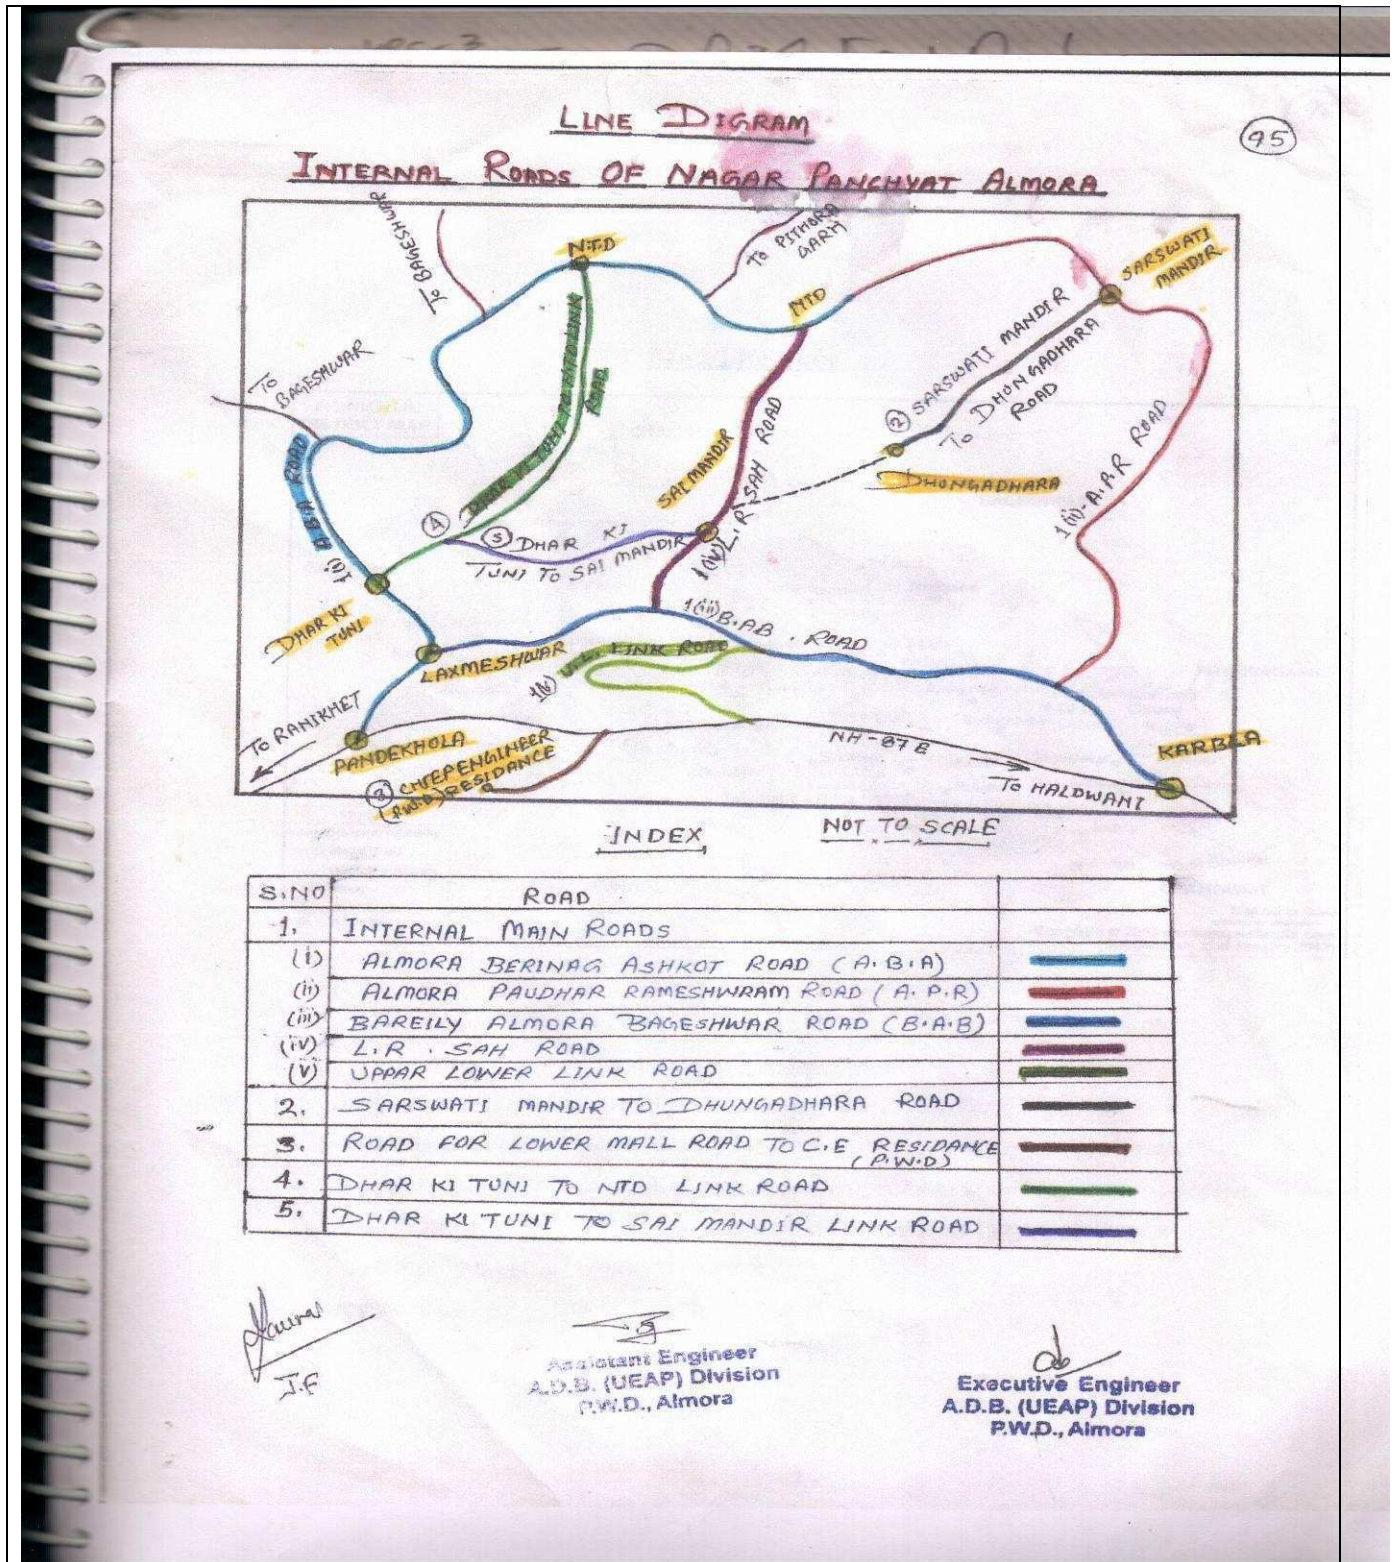 LINE DIGRAM
95
INTERNAL ROADS OF NAGAR PANCHYAT ALMORA
TO BAGESHWAR
N.T.D
TO PITHORA
GARH
SARSWATI
MANDIR
NTD
TO
BAGESHWAR
DHAR KI TUNI TO NTD LINK
ROAD
2 SARSWATI MANDIR
TO DHONGADHARA
ROAD
1(i) A.B.A ROAD
SAI MANDIR
1(iv) L.R. SAH ROAD
DHONGADHARA
1(ii)-A.P.R ROAD
4
5 DHAR KI
TUNI TO SAI MANDIR
DHAR KI
TUNI
1(iii) B.A.B. ROAD
LAXMESHWAR
1(v) U.L. LINK ROAD
TO RANIKHET
PANDEKHOLA
NH-87E
KARBLA
3 CHIEF ENGINEER
(P.W.D) RESIDANCE
TO HALDWANI
INDEX
NOT TO SCALE
S.NO ROAD
1. INTERNAL MAIN ROADS
(i) ALMORA BERINAG ASHKOT ROAD (A.B.A)
(ii) ALMORA PAUDHAR RAMESHWRAM ROAD (A.P.R)
(iii) BAREILY ALMORA BAGESHWAR ROAD (B.A.B)
(iv) L.R. SAH ROAD
(v) UPPAR LOWER LINK ROAD
2. SARSWATI MANDIR TO DHUNGADHARA ROAD
3. ROAD FOR LOWER MALL ROAD TO C.E RESIDANCE
(P.W.D)
4. DHAR KI TUNI TO NTD LINK ROAD
5. DHAR KI TUNI TO SAI MANDIR LINK ROAD
J.E
Assistant Engineer
A.D.B. (UEAP) Division
P.W.D., Almora
Executive Engineer
A.D.B. (UEAP) Division
P.W.D., Almora